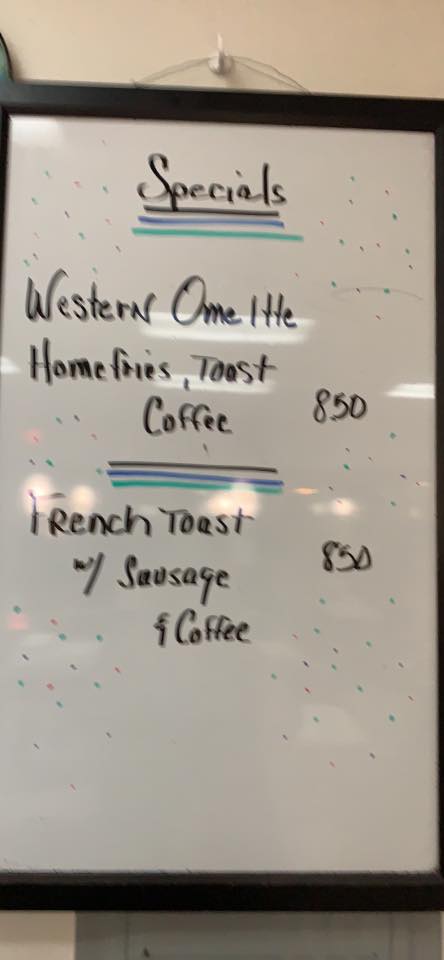 Specials
Western Omeltte
Homefries, Toast
Coffee 850
French Toast
w/ Sausage 850
& Coffee